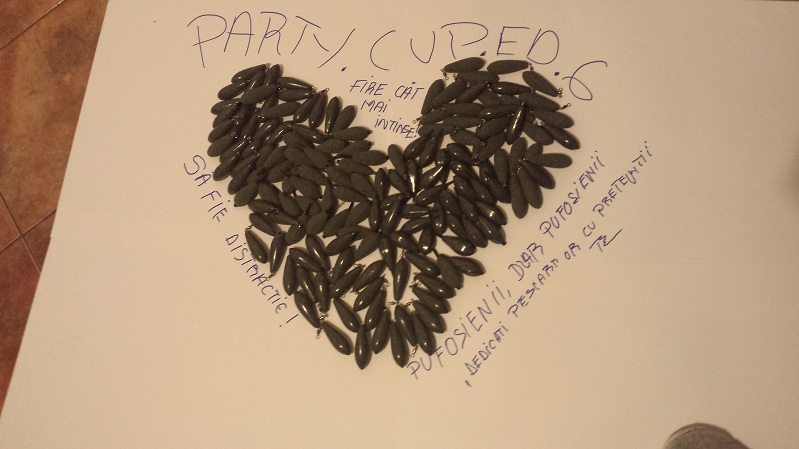 PARTY. CUP. ED. 6
FIRE CÂT
MAI
INTINSE!
SĂ FIE DISTRACTIE!
PUFOSIENII, DOAR PUFOSIENII
DEDICATI PESCARILOR CU PRETENTII